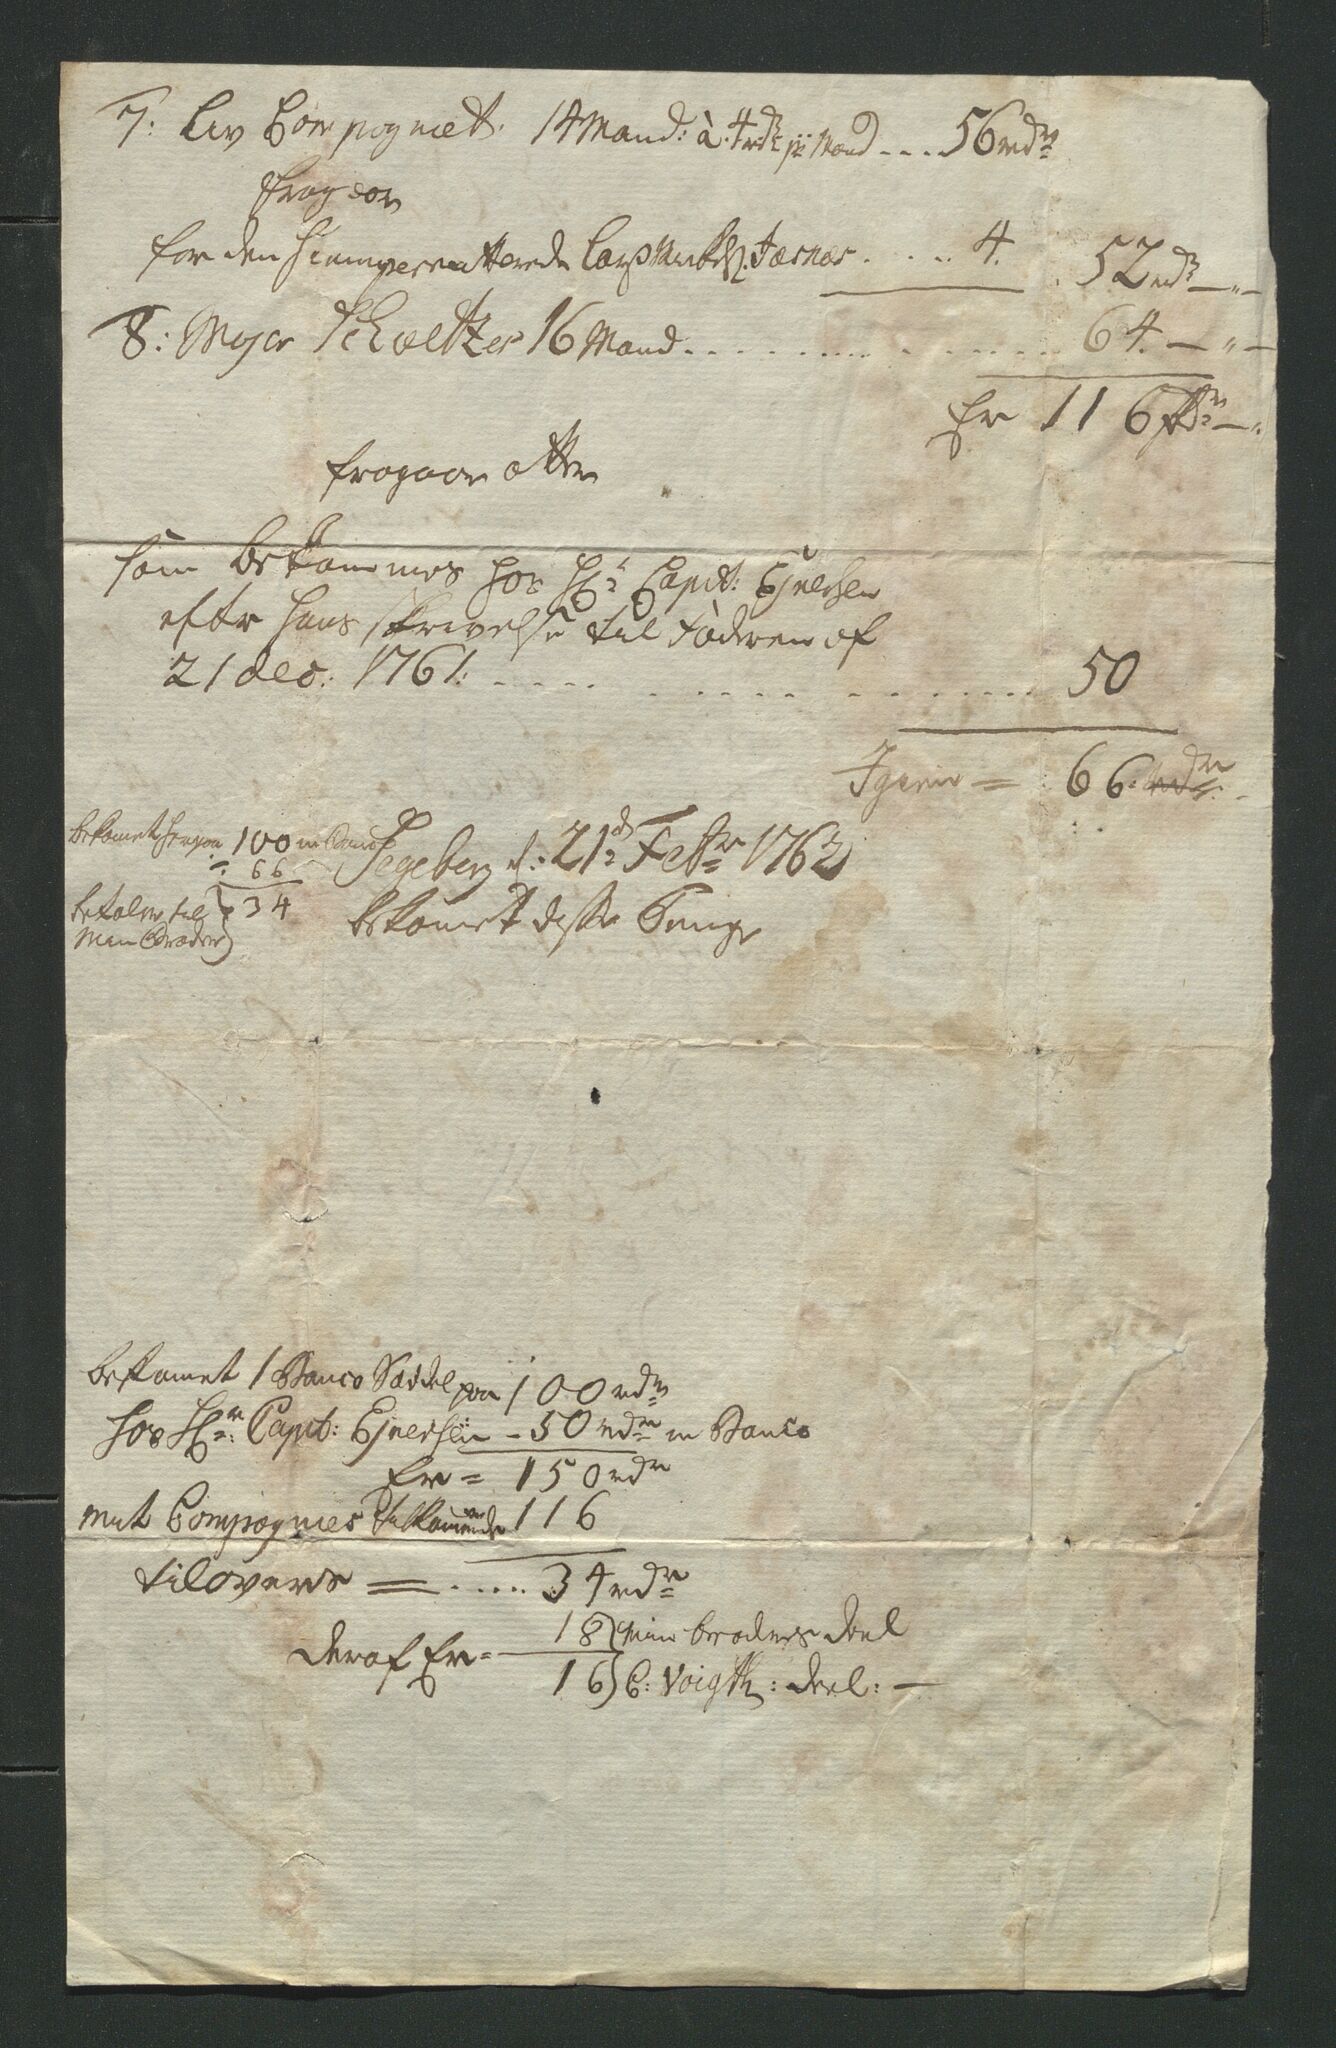 7: Liv Compagniet. 14 Mand: à 4 rdr pr Mand ... 56 rdr
fragaar
for den hiempermitterede Lars Jesnes ..... 4. 52 rdr — " —
8: Major Scholtzes 16 Mand ............ 64. — " —
Er 116 Rdr — "
fragaar atter
som bekommes hos Hr: Capit: Ejnersen
efter hans skrivelse til faderen af
21 dec: 1761: ............ 50
Igien = 66: rdr
bekomet herpaa 100 in Banco
66
betaler til 34
Min Broder
Segeberg d: 21d Febr 1762
bekomet disse Penge
bekomet 1 Banco Sæddel paa 100 rdr
hos Hr: Capit: Ejnersen - 50 rdr in Banco
Er = 150 rdr
mit Compagnies tilkomende 116
tilovers = ..... 34 rdr
deraf Er = 18 Min broders deel
16 C: Voigth: deel: —